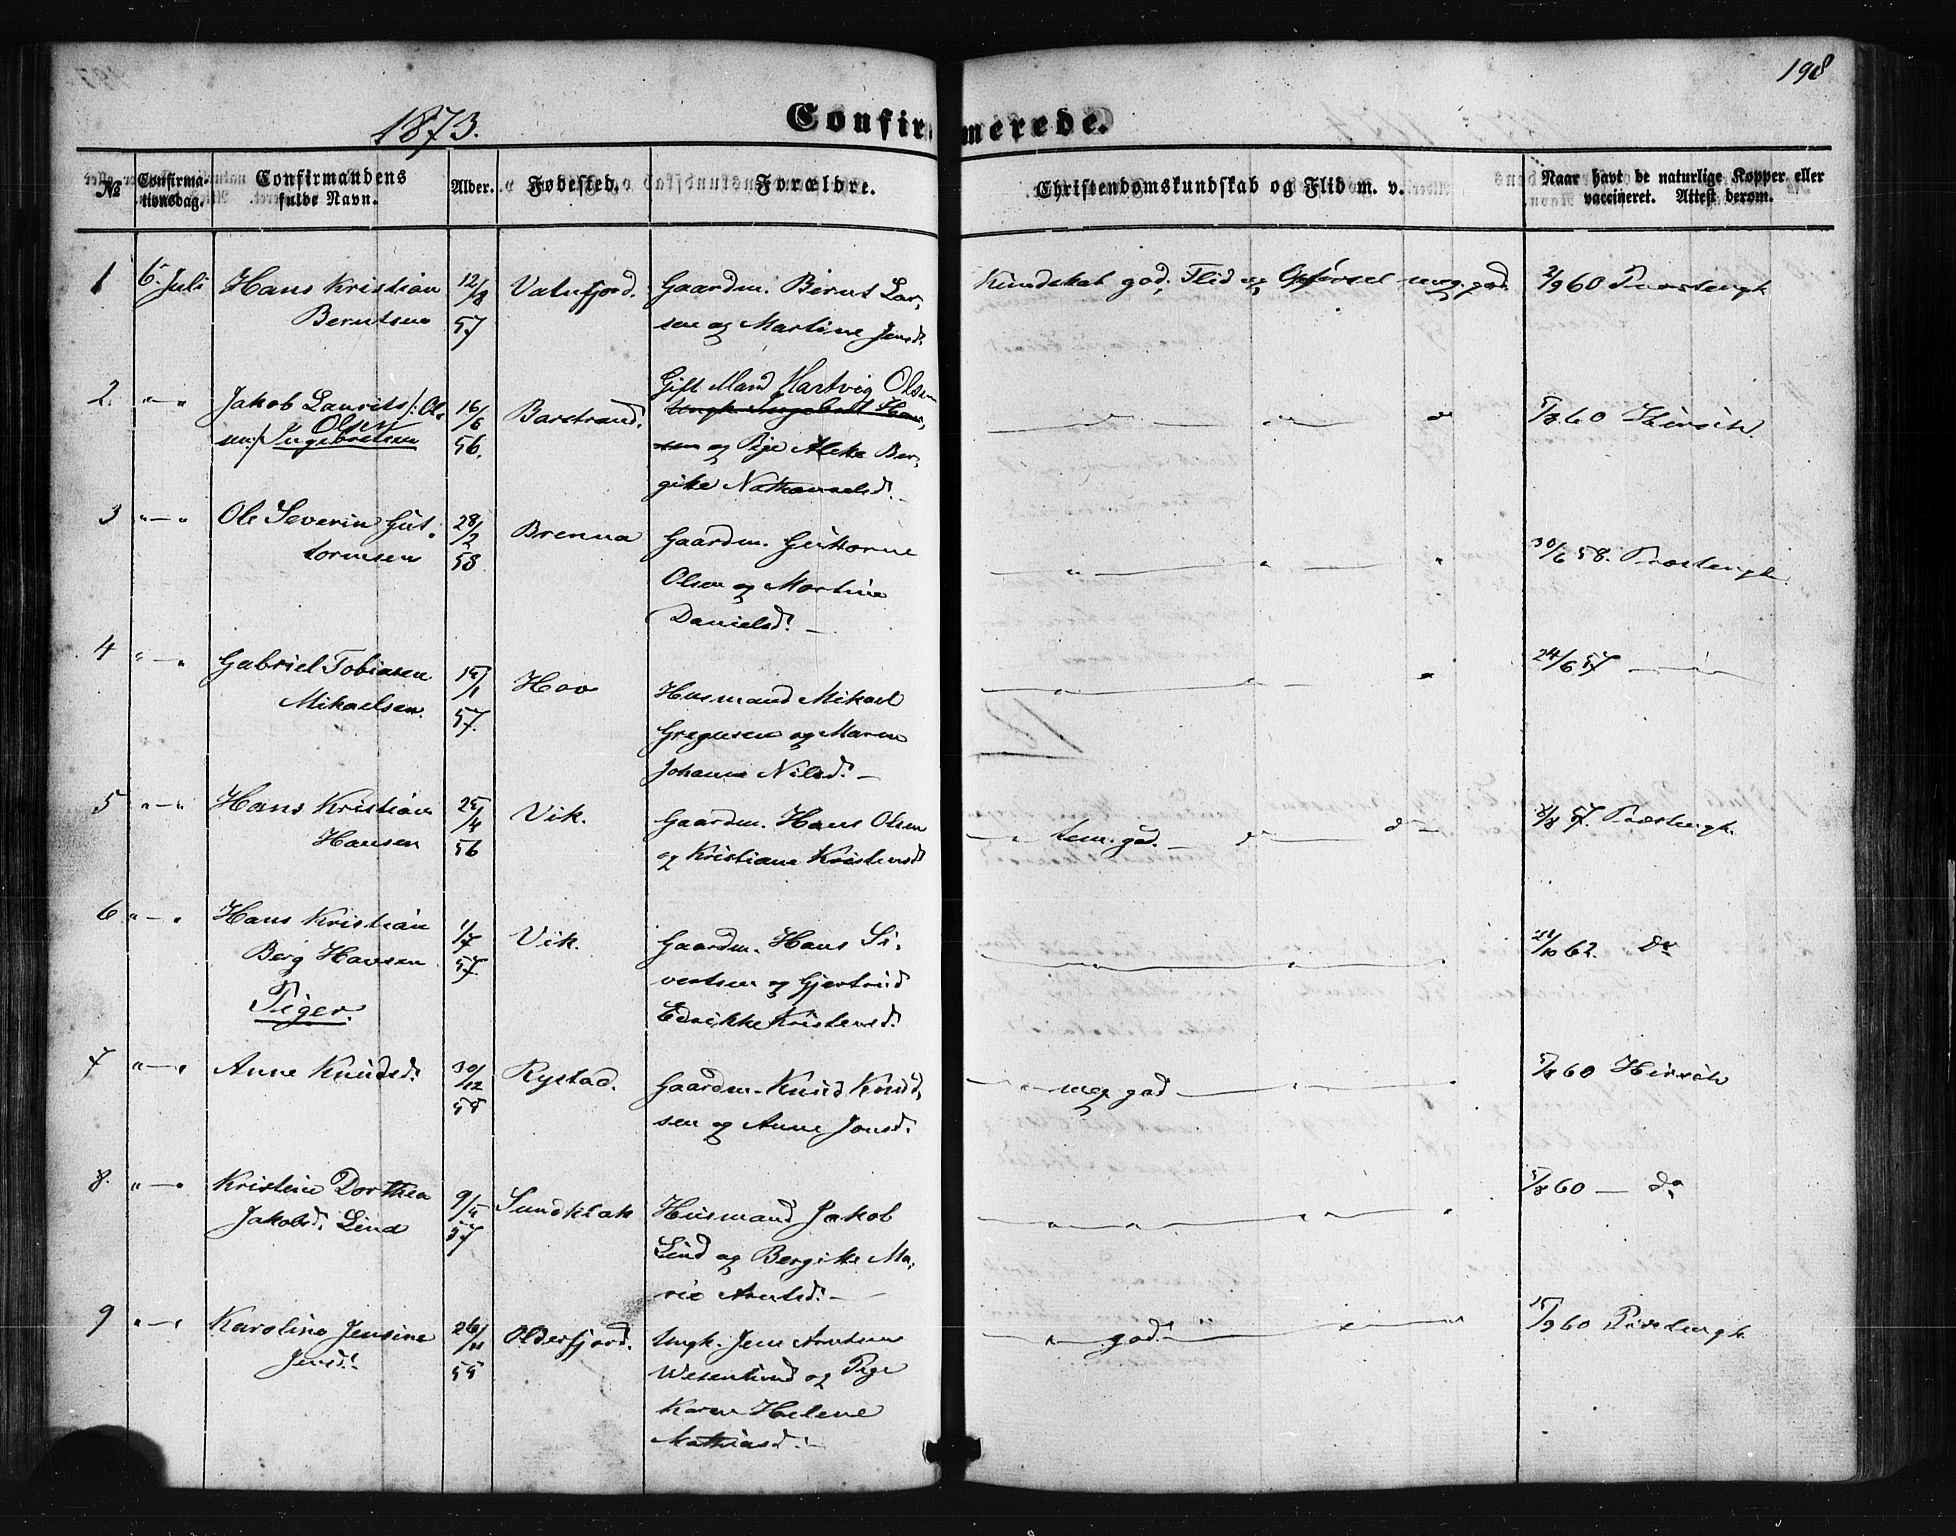 198
1873.
Confirmerede.
№
Confirmationsdag.
Confirmandens fulde Navn.
Alder.
Fødested.
Forældre.
Christendomskundskab og Flid m. v.
Naar havt de naturlige Kopper eller vaccineret. Attest derom.
1 6. Juli Hans Kristian 12/8 Vatnfjord. Gaardm. Bernt Lar- Kundskab god, Flid og Opførsel meg. god. 2/9 60
Berntsen 57 sen og Martine Jensd.
Gift Mand Hartvig Olsen
2. " — " Jakob Laurits /: Ol- 16/6 Barstrand. Ungk. Ingebrigt Han- 60 Hirsch.
Olsen
sen :/ Ingebretsen 56. sen og Pige Aleke Ber-
gitte Nathanaelsd. —
3 " — " Ole Severin Gut- 28/2 Brenna Gaardm. Guttorm 30/6 58. Præstengh.
tormsen 58 Olsen og Martine
Danielsd. —
4 " — " Gabriel Tobiasen 15/1 Hov Husmand Mikael 24/6 57 — " —
Mikaelsen. 57. Gregusen og Maren
Johanna Nilsd. —
5 " — " Hans Kristian 25/4 Vik. Gaardm. Hans Olsen — " tem. god. — do — do — 57. Præstengh.
Hansen 56 og Kristiane Kristensd
6 " — " Hans Kristian 1/7 Vik. Gaardm. Hans Si- 21/10 62. do
Berg Hansen 57. vertsen og Gjertrud
Piger. Edrikke Kristensd.
7 " — " Anne Knudsd. 30/12 Rystad. Gaardm. Knud Knud- — " meg god — 60 Hirsch
55 sen og Anne Jonsd.
8. " — " Kristine Dorthea 9/5 Sundklak Husmand Jakob 60 — do
Jakobsd. Lind 57 Lind og Bergitte Ma-
rie Arntsd. —
9 " — " Karoline Jensine 26/11 Olderfjord. Ungk. Jens Arntsen " god. — 60 Præstengh.
Jensd. 55 Wesenlund og Pige
Karen Helene
Mathiasd. —